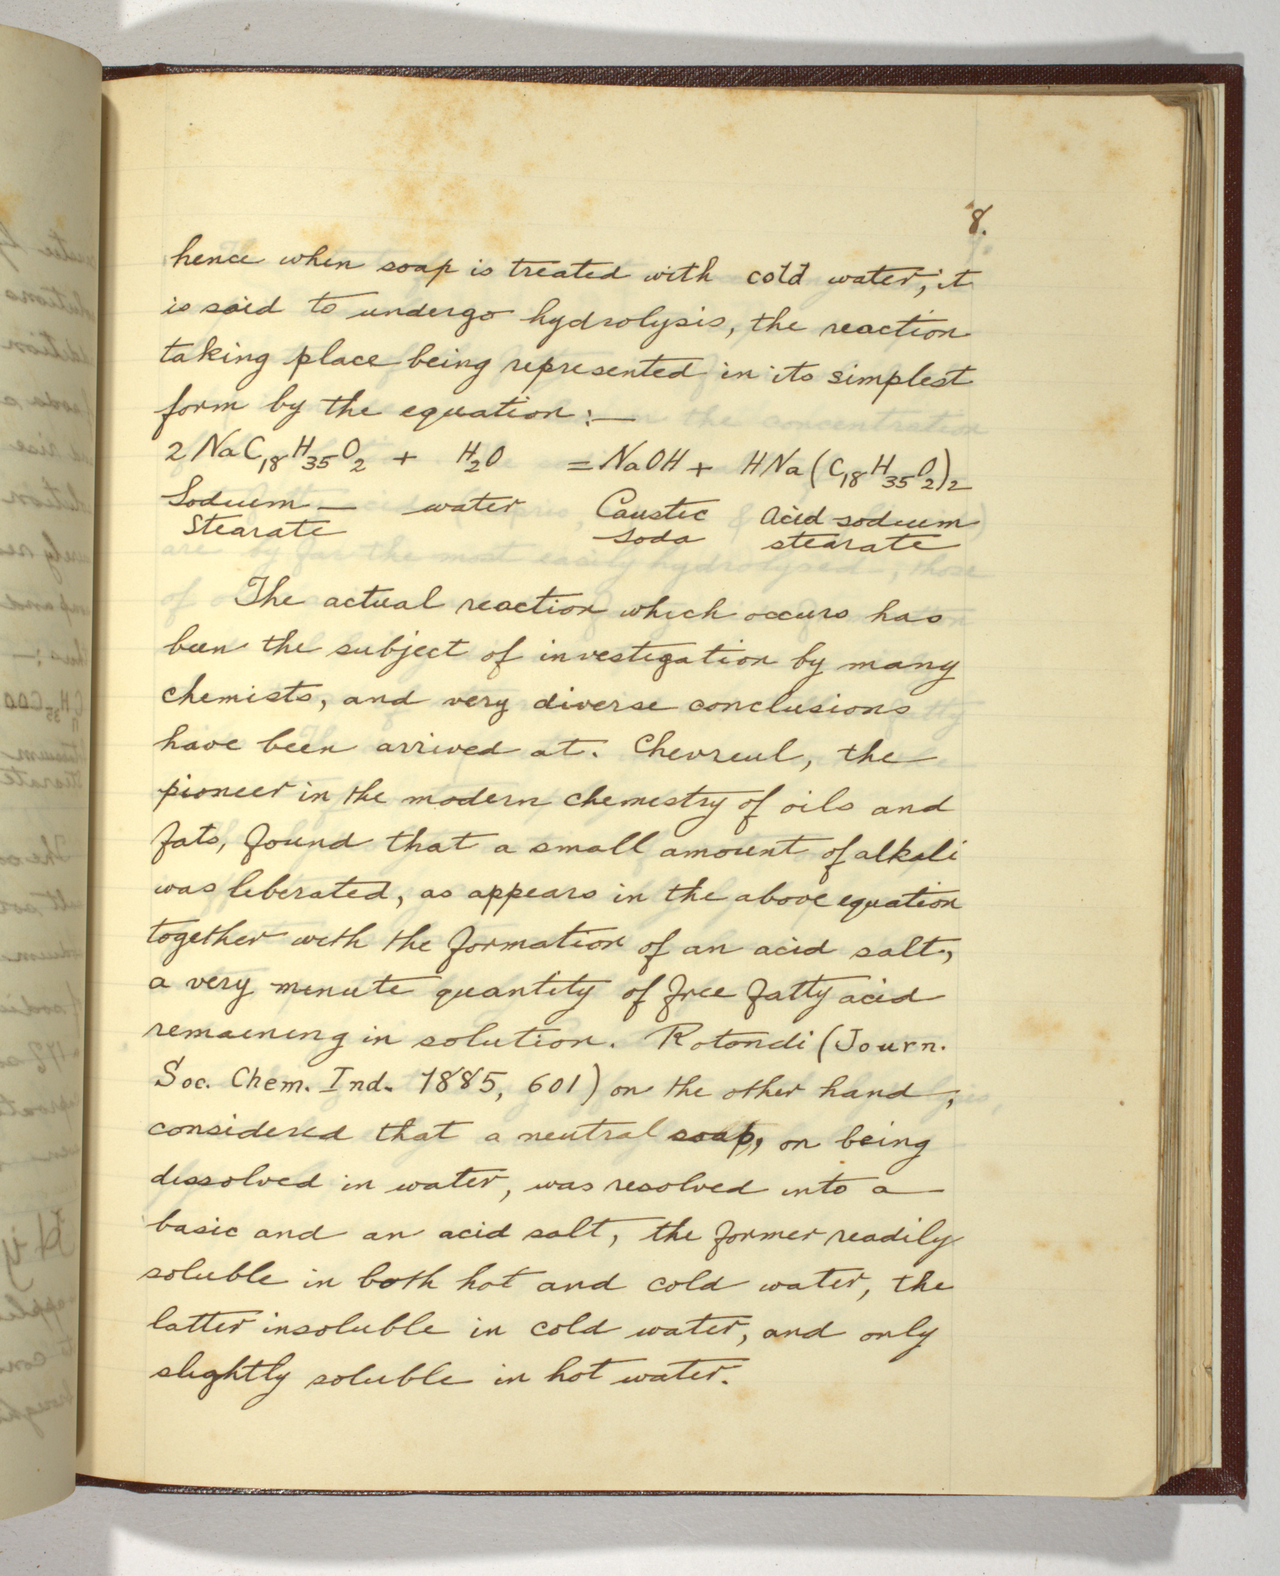 8.
hence when soap is treated with cold water, it
is said to undergo hydrolysis, the reaction
taking place being represented in its simplest
form by the equation :—
2 NaC₁₈H₃₅O₂ + H₂O = NaOH + HNa(C₁₈H₃₅O₂)₂
Sodium — water Caustic Acid sodium
Stearate soda stearate
The actual reaction which occurs has
been the subject of investigation by many
chemists, and very diverse conclusions
have been arrived at. Chevreul, the
pioneer in the modern chemistry of oils and
fats, found that a small amount of alkali
was liberated, as appears in the above equation
together with the formation of an acid salt,
a very minute quantity of free fatty acid
remaining in solution. Rotondi (Journ.
Soc. Chem. Ind. 1885, 601) on the other hand,
considered that a neutral soap, on being
dissolved in water, was resolved into a
basic and an acid salt, the former readily
soluble in both hot and cold water, the
latter insoluble in cold water, and only
slightly soluble in hot water.